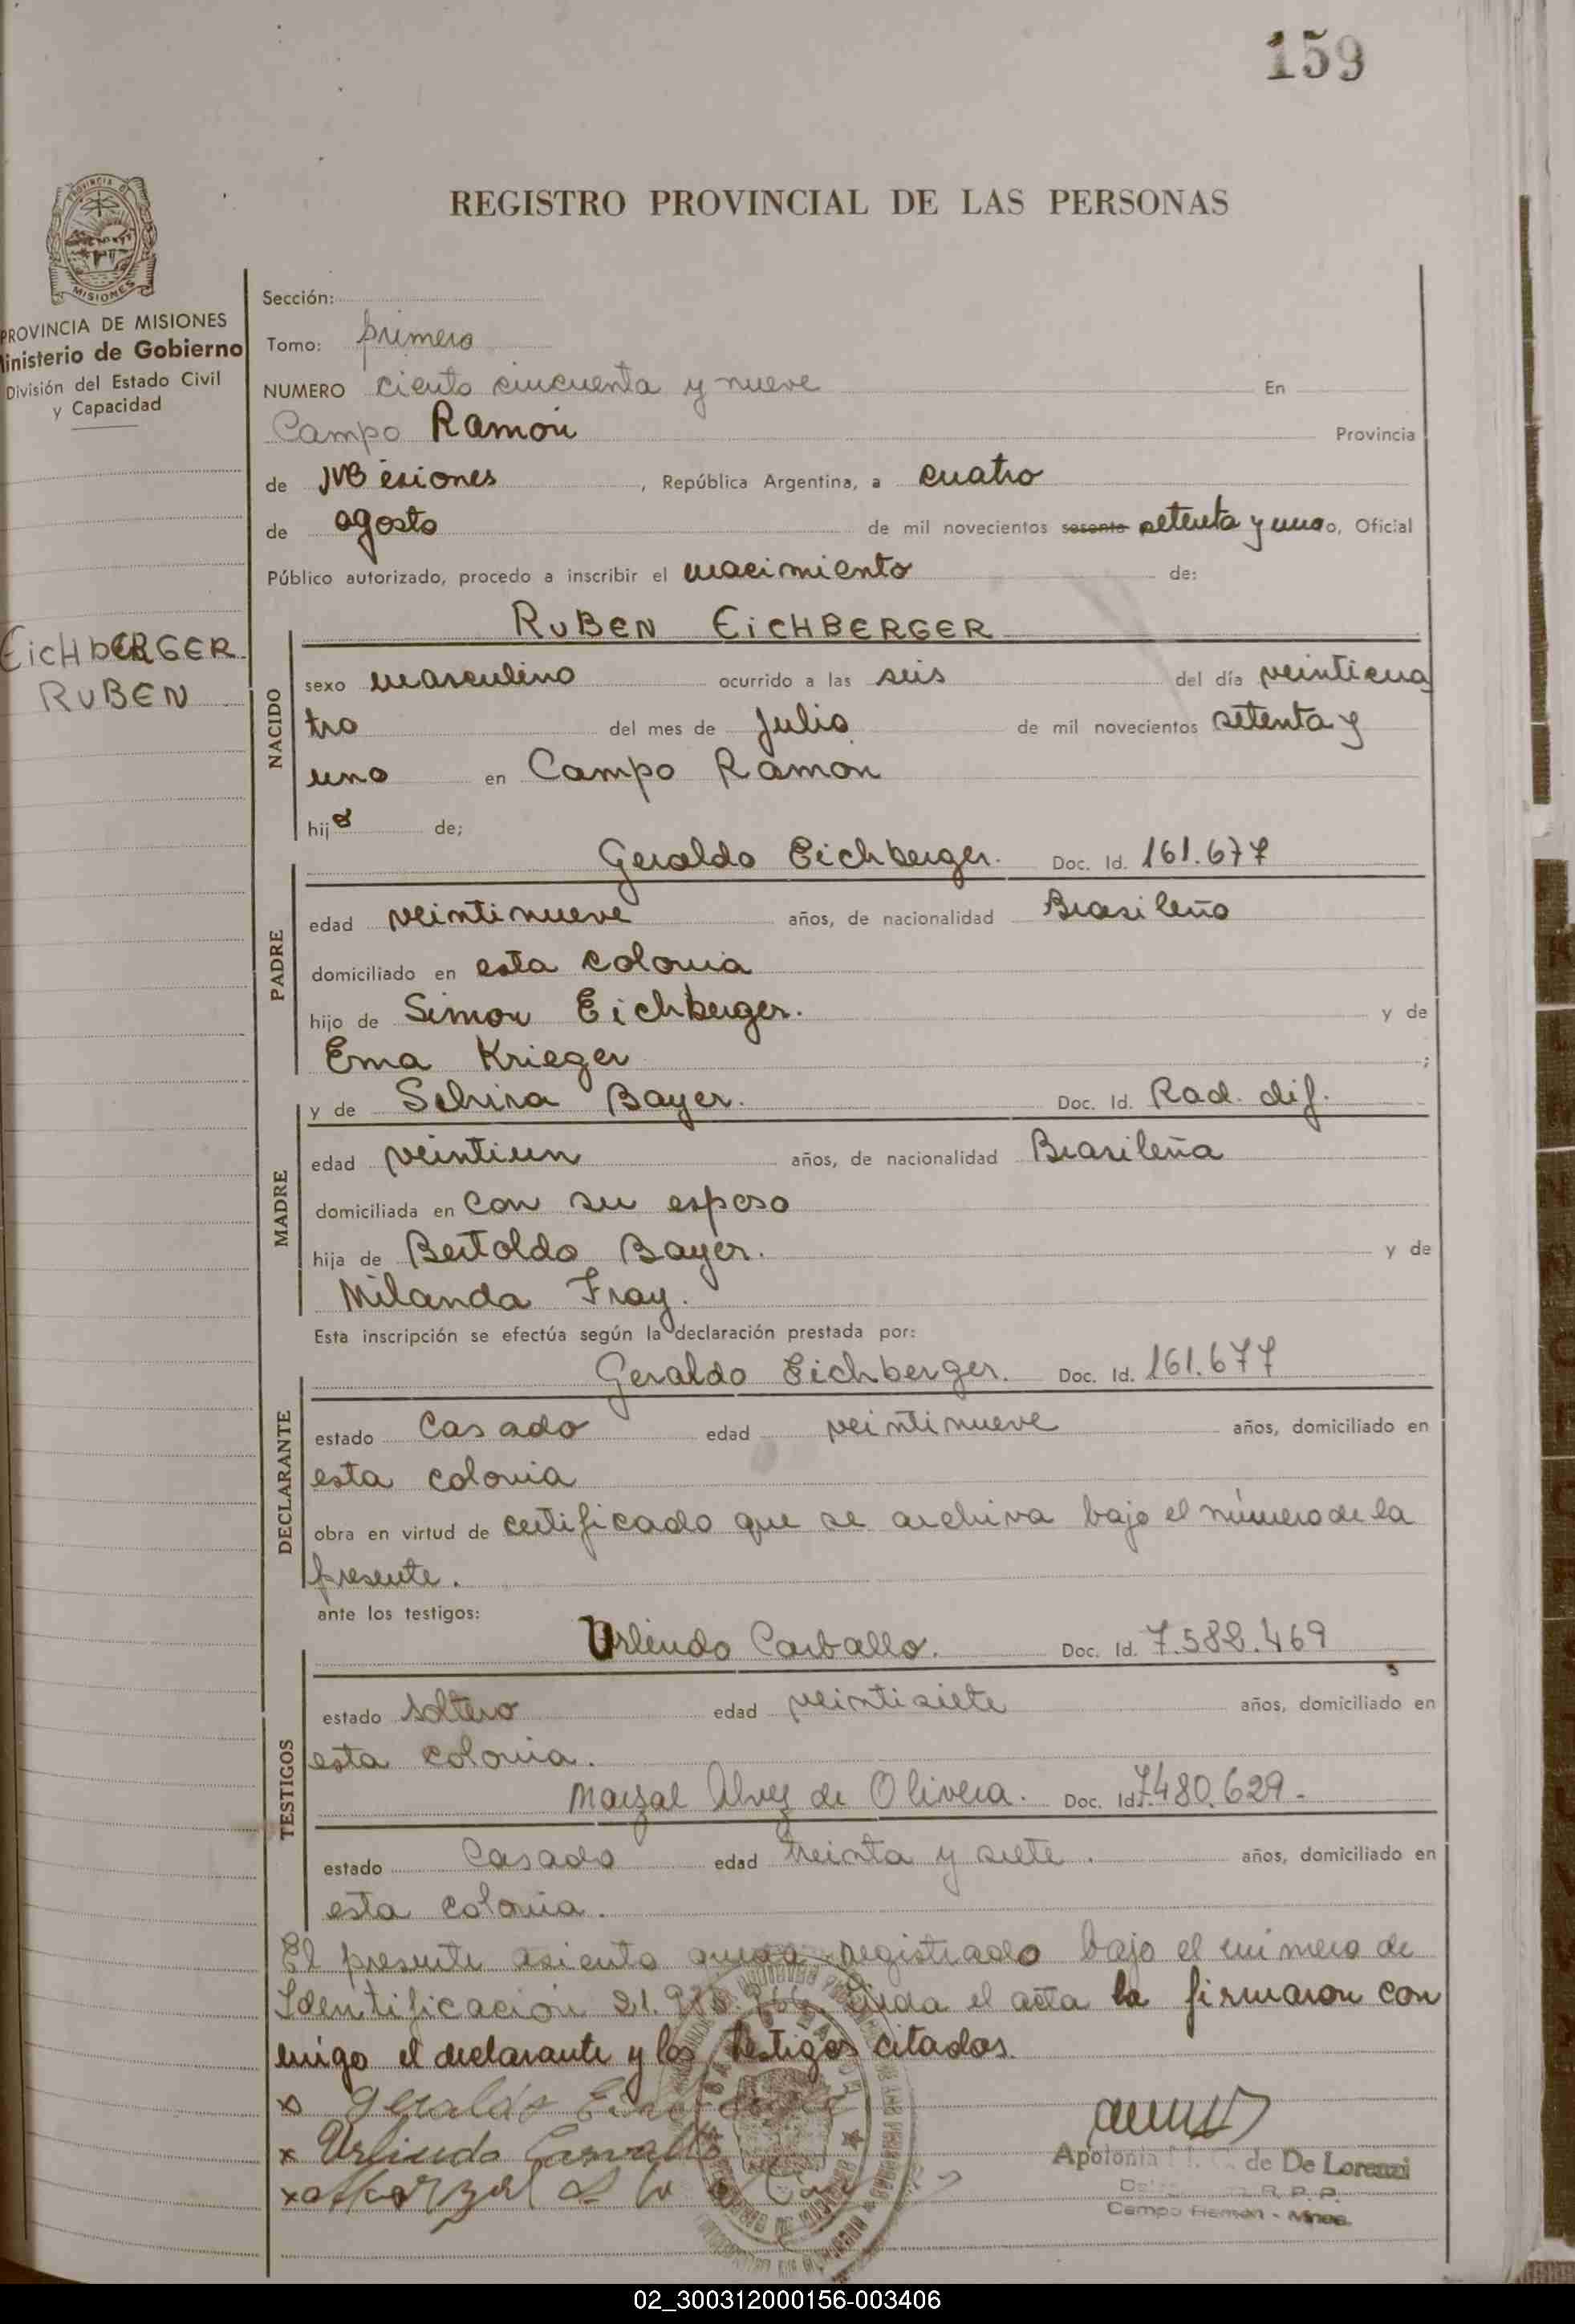 159
REGISTRO PROVINCIAL DE LAS PERSONAS
MISIONES
PROVINCIA DE MISIONES
Ministerio de Gobierno
División del Estado Civil
y Capacidad
EicHbERGER
RUBEN
Sección:
Tomo: primero
NUMERO ciento cincuenta y nueve En
Campo Ramón Provincia
de Misiones, República Argentina, a cuatro
de agosto de mil novecientos sesenta setenta y uno o, Oficial
Público autorizado, procedo a inscribir el nacimiento de:
NACIDO
RUBEN EICHBERGER
sexo masculino ocurrido a las seis del día veinticua
tro del mes de Julio de mil novecientos setenta y
uno en Campo Ramón
hijo de;
PADRE
Geraldo Eichberger. Doc. Id. 161.677
edad veintinueve años, de nacionalidad Brasileño
domiciliado en esta colonia
hijo de Simon Eichberger. y de
Ema Krieger ;
MADRE
y de Selvira Bayer. Doc. Id. Rad. dif.
edad veintiun años, de nacionalidad Brasileña
domiciliada en con su esposo
hija de Bertoldo Bayer. y de
Milanda Fray.
Esta inscripción se efectúa según la declaración prestada por:
DECLARANTE
Geraldo Eichberger. Doc. Id. 161.677
estado Casado edad veintinueve años, domiciliado en
esta colonia
obra en virtud de certificado que se archiva bajo el número de la
presente.
ante los testigos:
TESTIGOS
Urlindo Carballo. Doc. Id. 7.582.469
estado soltero edad veintisiete años, domiciliado en
esta colonia.
Marzal Alvez de Olivera. Doc. Id. 7.480.629.
estado Casado edad treinta y siete. años, domiciliado en
esta colonia.
El presente asiento queda registrado bajo el número de
Identificación 21. leida el acta la firmaron con
migo el declarante y los testigos citados.
x Geraldo
x Urlindo Carvallo
x Marzal
Apolonia de De Lorenzi
R. P. P.
Campo Ramón - Mnes.
02_300312000156-003406